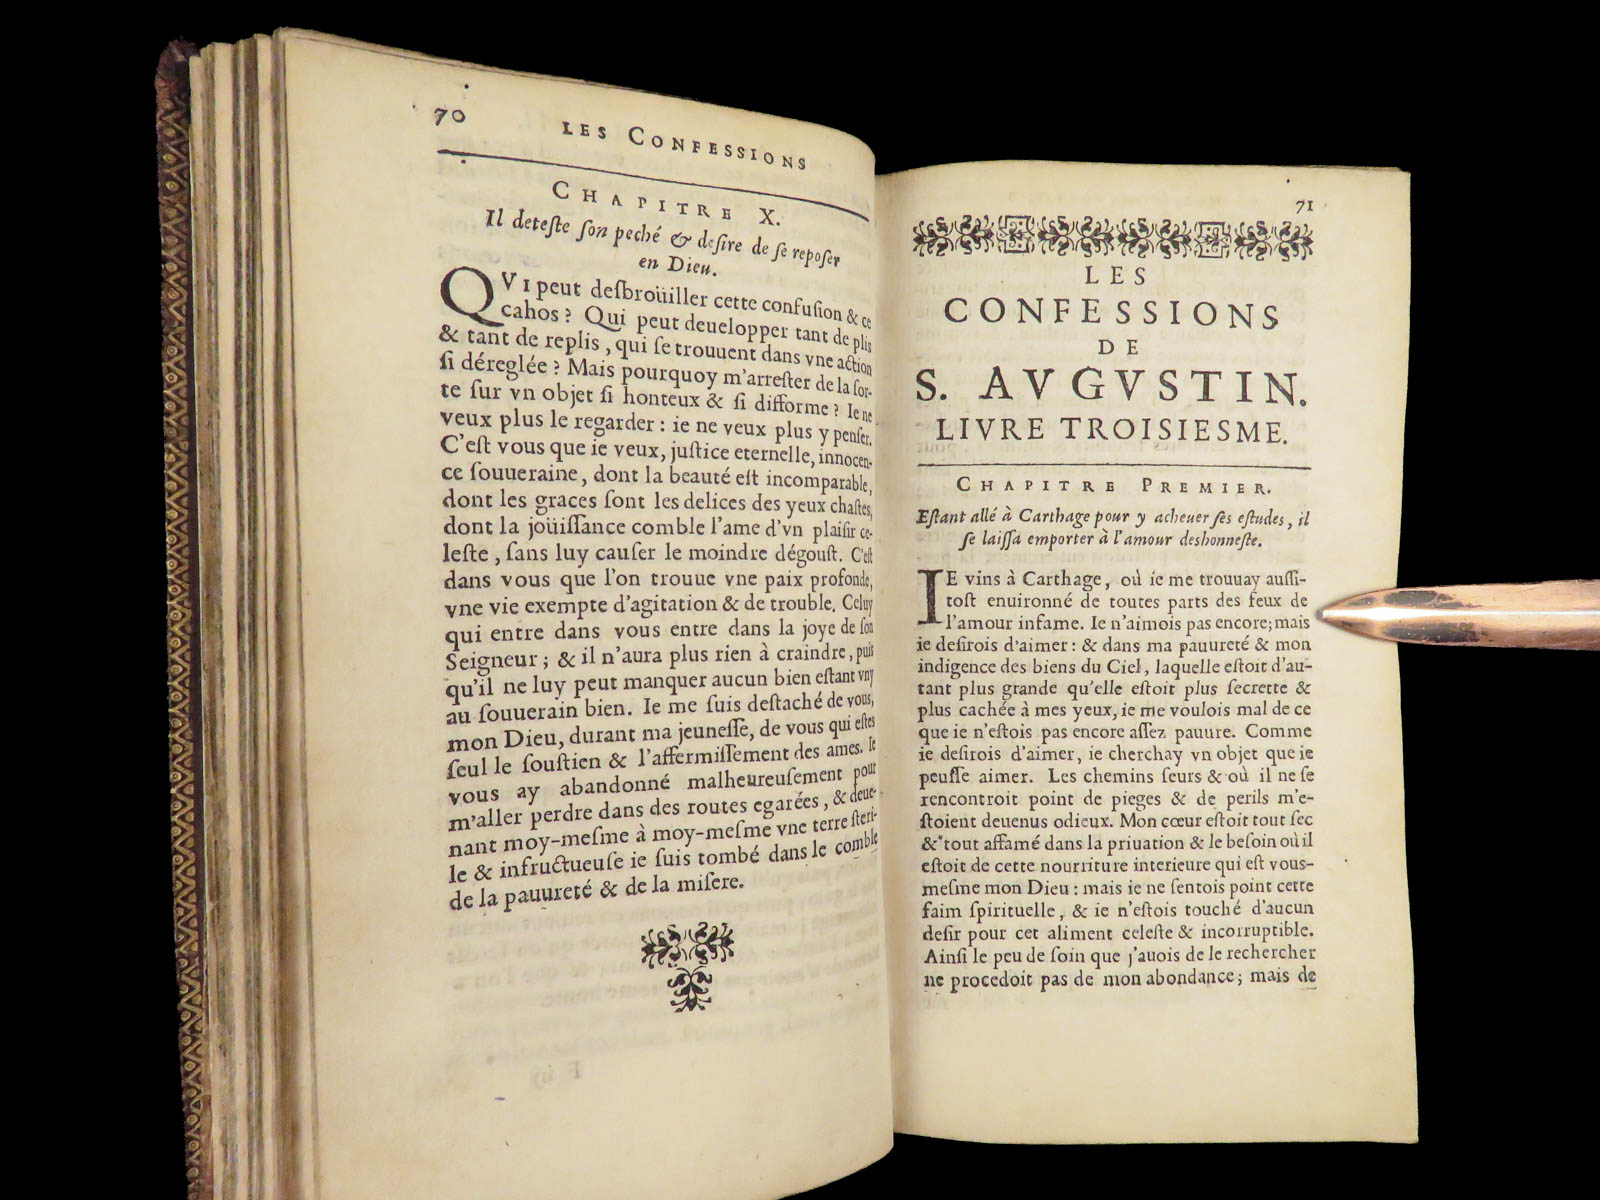 70
LES CONFESSIONS
CHAPITRE X.
Il deteſte ſon peché & deſire de ſe repoſer
en Dieu.
QVI peut deſbroüiller cette confuſion & ce
cahos? Qui peut deuelopper tant de plis
& tant de replis, qui ſe trouuent dans vne action
ſi déreglée? Mais pourquoy m'arreſter de la ſor-
te ſur vn objet ſi honteux & ſi difforme? Ie ne
veux plus le regarder: ie ne veux plus y penſer.
C'eſt vous que ie veux, juſtice eternelle, innocen-
ce ſouueraine, dont la beauté eſt incomparable,
dont les graces ſont les delices des yeux chaſtes,
dont la joüiſſance comble l'ame d'vn plaiſir ce-
leſte, ſans luy cauſer le moindre dégouſt. C'eſt
dans vous que l'on trouue vne paix profonde,
vne vie exempte d'agitation & de trouble. Celuy
qui entre dans vous entre dans la joye de ſon
Seigneur; & il n'aura plus rien à craindre, puis
qu'il ne luy peut manquer aucun bien eſtant vny
au ſouuerain bien. Ie me ſuis deſtaché de vous,
mon Dieu, durant ma jeuneſſe, de vous qui eſtes
ſeul le ſouſtien & l'affermiſſement des ames. Ie
vous ay abandonné malheureuſement pour
m'aller perdre dans des routes egarées, & deue-
nant moy-meſme à moy-meſme vne terre ſteri-
le & infructueuſe ie ſuis tombé dans le comble
de la pauureté & de la miſere.
71
LES
CONFESSIONS
DE
S. AVGVSTIN.
LIVRE TROISIESME.
CHAPITRE PREMIER.
Eſtant allé à Carthage pour y acheuer ſes eſtudes, il
ſe laiſſa emporter à l'amour deshonneſte.
IE vins à Carthage, où ie me trouuay auſſi-
toſt enuironné de toutes parts des feux de
l'amour infame. Ie n'aimois pas encore; mais
ie deſirois d'aimer: & dans ma pauureté & mon
indigence des biens du Ciel, laquelle eſtoit d'au-
tant plus grande qu'elle eſtoit plus ſecrette &
plus cachée à mes yeux, ie me voulois mal de ce
que ie n'eſtois pas encore aſſez pauure. Comme
ie deſirois d'aimer, ie cherchay vn objet que ie
peuſſe aimer. Les chemins ſeurs & où il ne ſe
rencontroit point de pieges & de perils m'e-
ſtoient deuenus odieux. Mon cœur eſtoit tout ſec
& tout affamé dans la priuation & le beſoin où il
eſtoit de cette nourriture interieure qui eſt vous-
meſme mon Dieu: mais ie ne ſentois point cette
faim ſpirituelle, & ie n'eſtois touché d'aucun
deſir pour cet aliment celeſte & incorruptible.
Ainſi le peu de ſoin que j'auois de le rechercher
ne procedoit pas de mon abondance; mais de